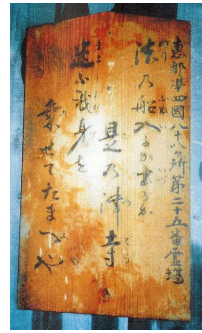 惠那準四國八十八ヶ所第二十五番霊場
法乃船入るか出るか
是乃津寺
迷ふ我身を
乗せてたまへや